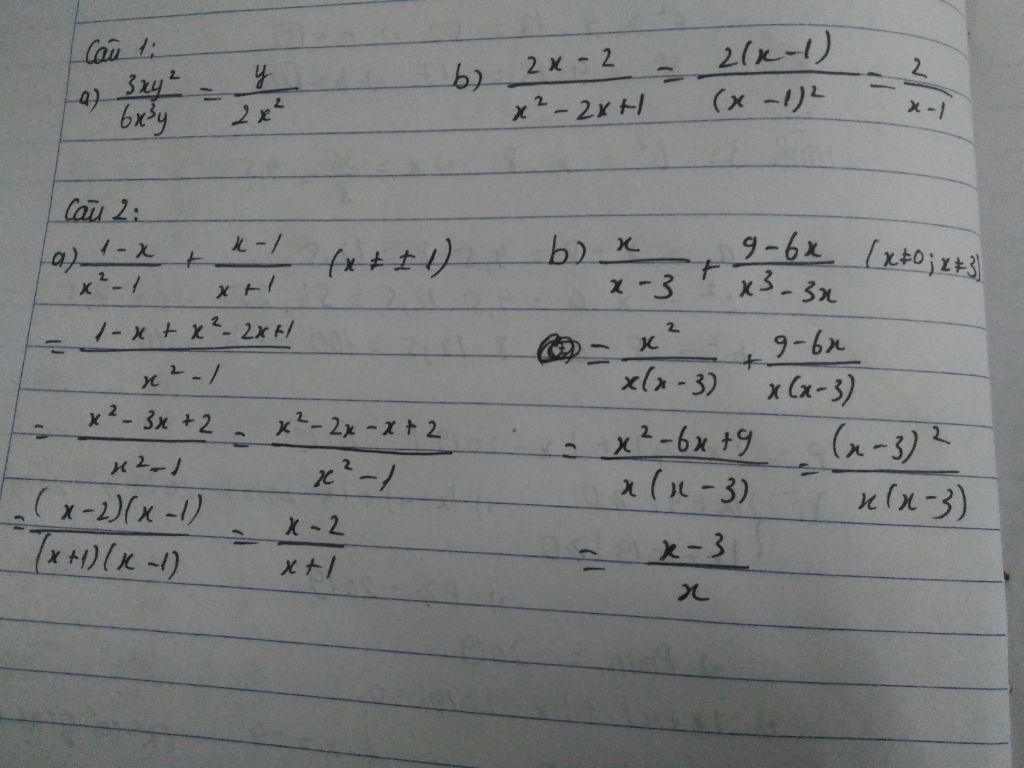 Câu 1:
a) 3xy²/6x³y = y/2x²
b) 2x - 2/x² - 2x+1 = 2(x-1)/(x-1)² = 2/x-1
Câu 2:
a) 1-x/x²-1 + x-1/x+1 (x ≠ ±1)
= 1-x + x² - 2x+1/x²-1
= x² - 3x + 2/x²-1 = x² - 2x - x + 2/x² - 1
= (x-2)(x-1)/(x+1)(x-1) = x-2/x+1
b) x/x-3 + 9-6x/x³ - 3x (x≠0; x≠3)
= x²/x(x-3) + 9-6x/x(x-3)
= x² - 6x + 9/x(x-3) = (x-3)²/x(x-3)
= x-3/x